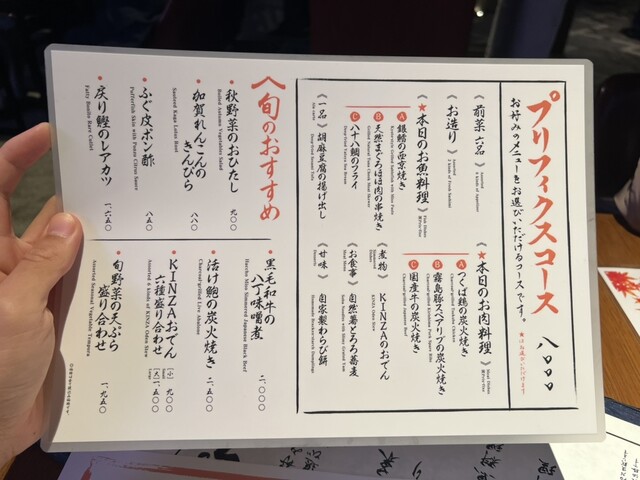 プリフィクスコース 八〇〇〇
お好みのメニューをお選びいただけるコースです。
★はお選びいただけます
《前菜二品》 Assorted 2 kinds of Appetizer
《お造り》 Assorted 4 kinds of Fresh Sashimi
《★本日のお魚料理》 Fish Dishes
A 銀鱈の西京焼き
B 天然まぐろほほ肉の串焼き
C 八十八鯛のフライ
《一品》 胡麻豆腐の揚げ出し
À la carte Deep-fried Sesame Tofu
《★本日のお肉料理》 Meat Dishes
A つくば鶏の炭火焼き
Charcoal-grilled Tsukuba Chicken
B 霧島豚スペアリブの炭火焼き
Charcoal-grilled Kirishima Pork Spare Ribs
C 国産牛の炭火焼き
Charcoal-grilled Japanese Beef
《煮物》 KINZAのおでん
KINZA Oden
《お食事》 自然薯とろろ蕎麦
Soba Noodles with Slimy Grated Yam
《甘味》 自家製わらび餅
Homemade Bracken-starch Dumplings
旬のおすすめ
秋野菜のおひたし 九〇〇
Boiled Autumn Vegetables Salad
加賀れんこんのきんぴら 八八〇
Sauteed Kaga Lotus Root
ふぐ皮ポン酢 八五〇
Pufferfish Skin with Ponzu Citrus Sauce
戻り鰹のレアカツ 一、六五〇
Fatty Bonito Rare Cutlet
黒毛和牛の八丁味噌煮 二、〇〇〇
Haccho Miso Simmered Japanese Black Beef
活け鮑の炭火焼き 二、五〇〇
Charcoal-grilled Live Abalone
KINZAおでん
六種盛り合わせ
(小) 九〇〇
(大) 一、八五〇
Assorted 6 kinds of KINZA Oden Stew
旬野菜の天ぷら
盛り合わせ 一、九五〇
Assorted Seasonal Vegetable Tempura